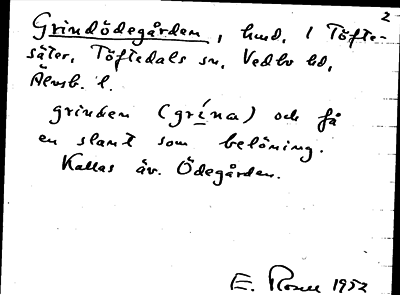 2
Grindödegården, hmd, i Töfte-
säter, Töftedals sn, Vedbo hd,
Älvsb. l.
grinden (grína) och få
en slant som belöning.
Kallas äv. Ödegården.
E. 1952